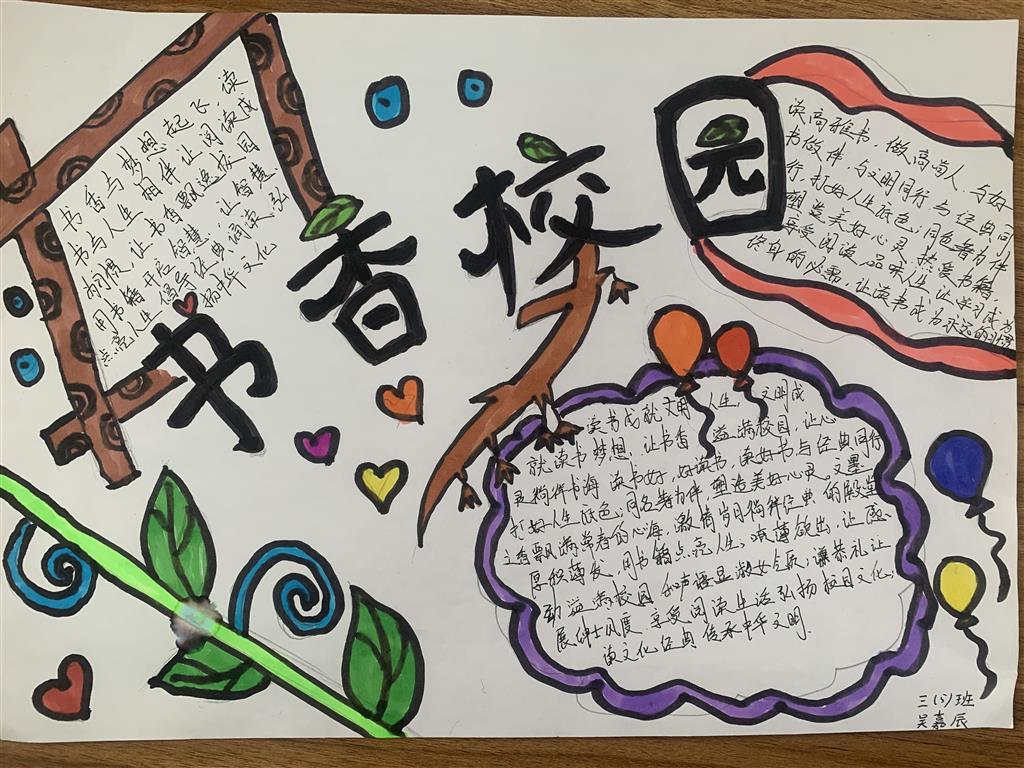 书香校园
书香与梦想起飞,读
书与人生相伴让阅读成
习惯,让书香飘逸校园
用书籍开启智慧,让智慧
点亮人生倡导经典诵读弘
扬中华文化
读高雅书,做高尚人、与好
书做伴 与文明同行与经典同
行,打好人生底色;同名著为伴
塑造美好心灵,热爱书籍,
享受阅读,品味人生,让学习成为
终身的必需,让读书成为永远的习惯
读书成就文明人生,文明成
就读书梦想,让书香溢满校园,让心
灵徜徉书海 读书好,好读书,读好书与经典同行
打好人生底色;同名著为伴,塑造美好心灵,文墨
之香飘满学者的心海,激情岁月徜徉经典的殿堂
厚积薄发,用书籍点亮人生,喷薄欲出,让感
动溢满校园 和声
显淑女气质;谦恭礼让
展绅士风度 享受阅读生活弘扬校园文化,
读文化经典传承中华文明.
三(5)班
吴嘉辰